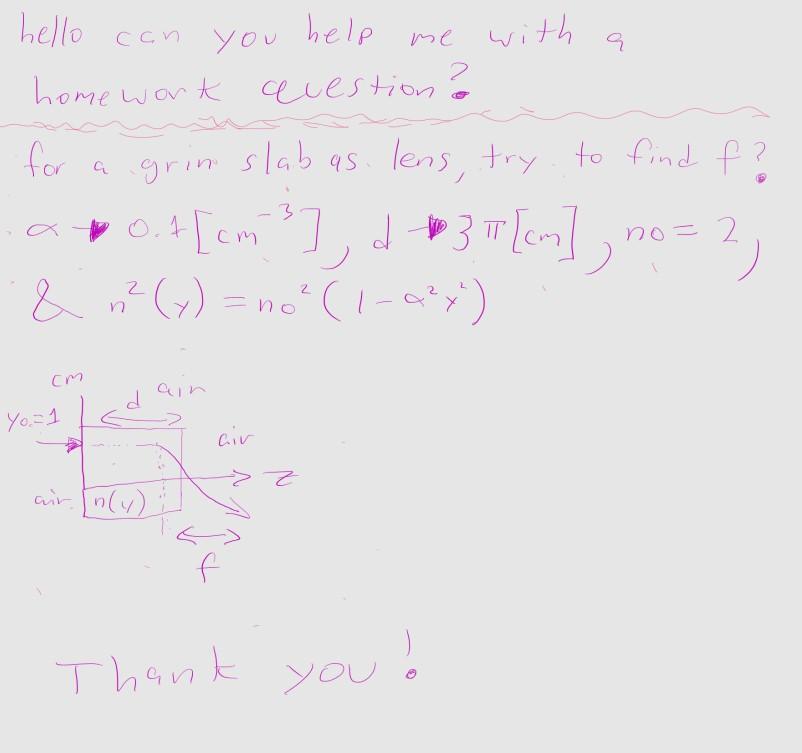 hello can you help me with a
homework question?
for a grin slab as lens, try to find f?
α → 0.1 [cm⁻³], d → 3π [cm], no = 2,
& n²(y) = no² (1 - α² y²)
cm
d air
yo = 1
air
z
air n(y)
f
Thank you!